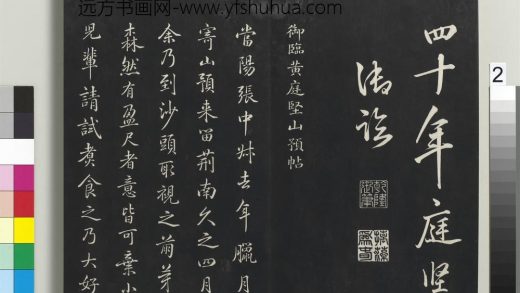 远方书画网- www.yfshuhua.com
四十年庭坚
御臨黄庭堅山預帖
當陽張中叔去年臘月
寄山預来留荆南久之四月
余乃到沙頭取視之萌芽
森然有盈尺者意皆可棄小
兒輩請試煮食之乃大好
2